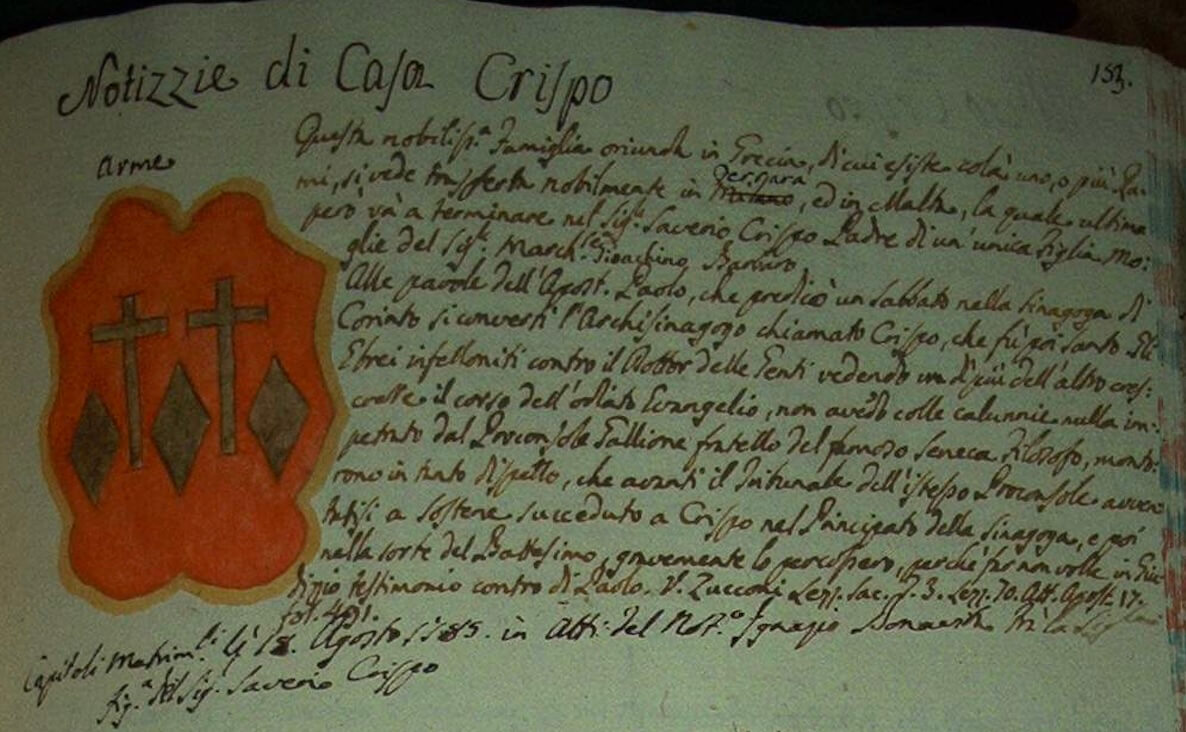 Notizzie di Casa Crispo
153.
Arme
Questa nobiliss.ª Famiglia oriunda in Grecia, di cui esiste colà uno, o più Ra-
mi, si vede trasferta nobilmente in Milano Ferrara, ed in Malta, la quale ultima
però và a terminare nel Sig.r Saverio Crispo Padre di un' unica figlia mo:
glie del Sig.r March.se Gioachino Barbaro
Alle parole dell' Apost. Paolo, che predicò un sabbato nella Sinagoga di
Corinto si convertì l'Archisinagogo chiamato Crispo, che fù poi Santo. Gli
Ebrei infelloniti contro il Dottor delle Genti vedendo un dì più dell' altro cres:
cere il corso dell' odiato Evangelio, non avēdo colle calunnie nulla im:
petrato dal Proconsole Gallione fratello del famoso Seneca Filosofo, mont:
rono in tanto dispetto, che avanti il Tribunale dell' istesso Proconsole avven
tatisi a Sostene succeduto a Crispo nel Principato della Sinagoga, e poi
nella sorte del Battesimo, gravemente lo percossero, perchè far non volle in Giu
dizio testimonio contro di Paolo. V. Zucconi Lez. Sac. T. 3. Lez. 70. Att. Apost. 17.
fol. 481.
Capitoli Matrim.li li 18. Agosto in Atti del Not.º Ignazio Bonavita trà la
fig.ª del Sig. Saverio Crispo